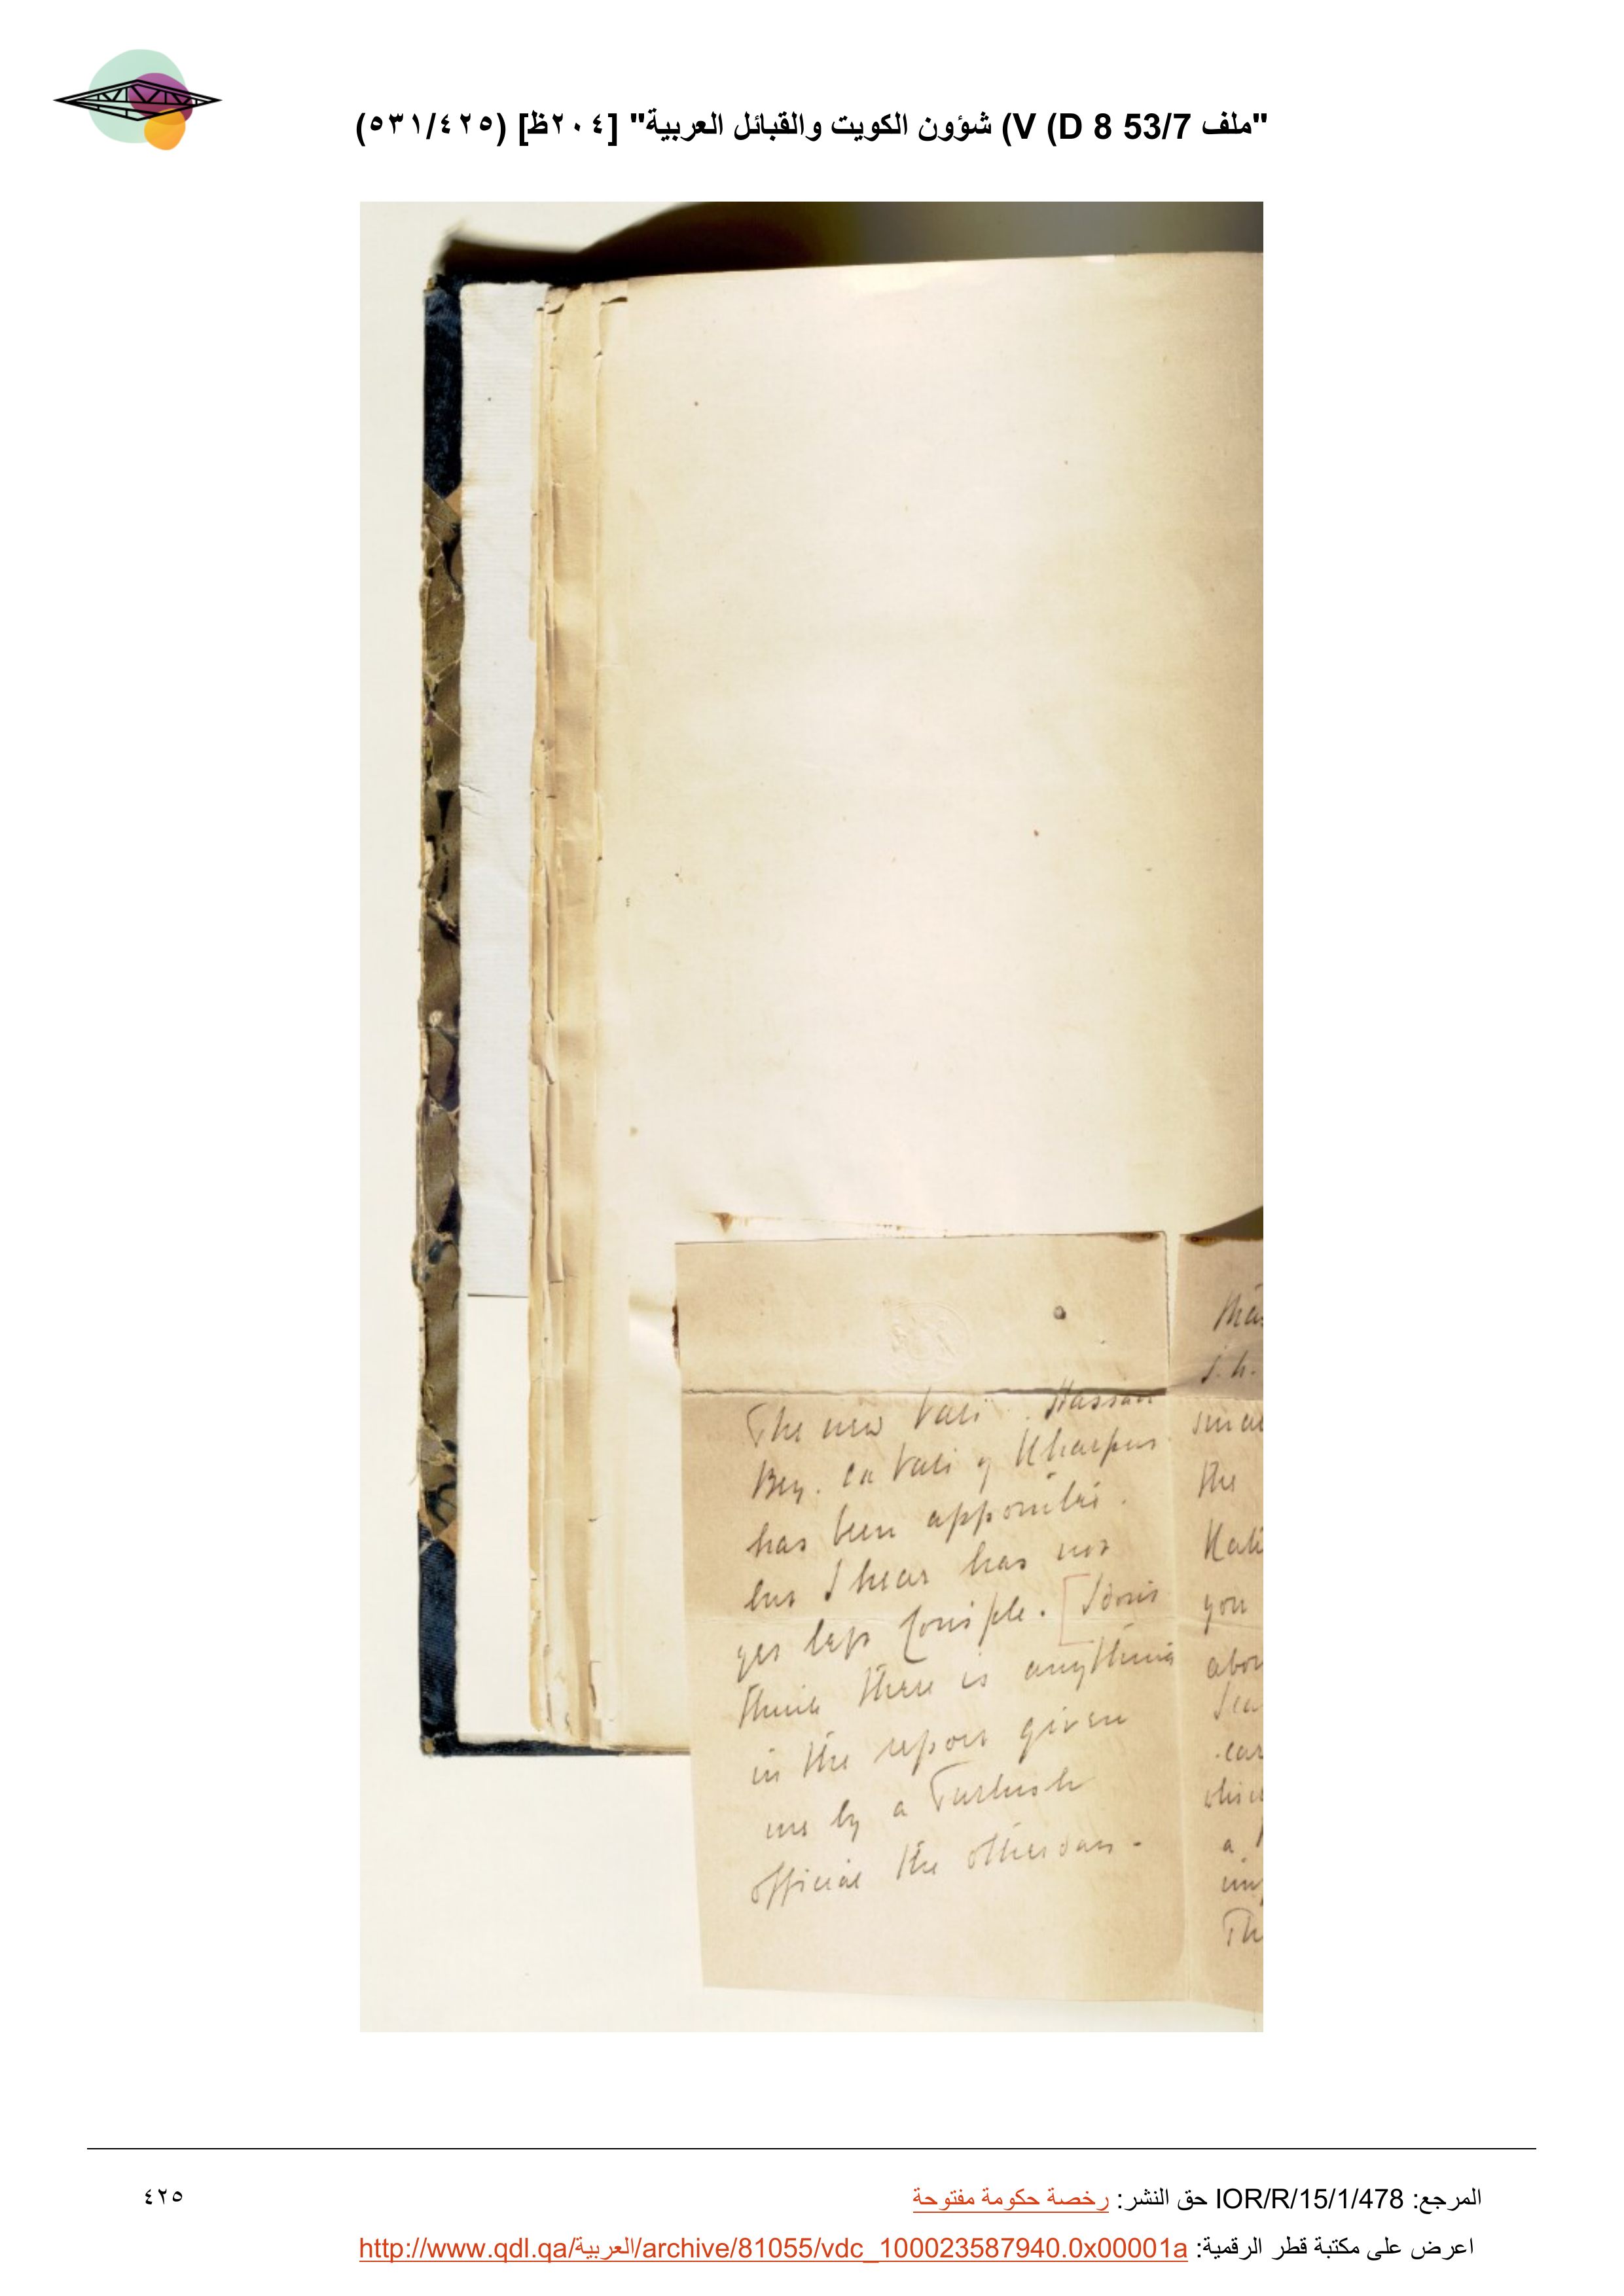 "ملف 53/7 D 8) V) شؤون الكويت والقبائل العربية" [٢٠٤ظ] (٥٣١/٤٢٥)
The new Vali . Hassan
Bey. Ex Vali of Kharput
has been appointed .
but I hear has not
yet left Consple. [I don't
think there is anything
in the report given
me by a Turkish
official the other day -
the
you
a
Th
المرجع: IOR/R/15/1/478 حق النشر: رخصة حكومة مفتوحة
٤٢٥
اعرض على مكتبة قطر الرقمية: http://www.qdl.qa/العربية/archive/81055/vdc_100023587940.0x00001a